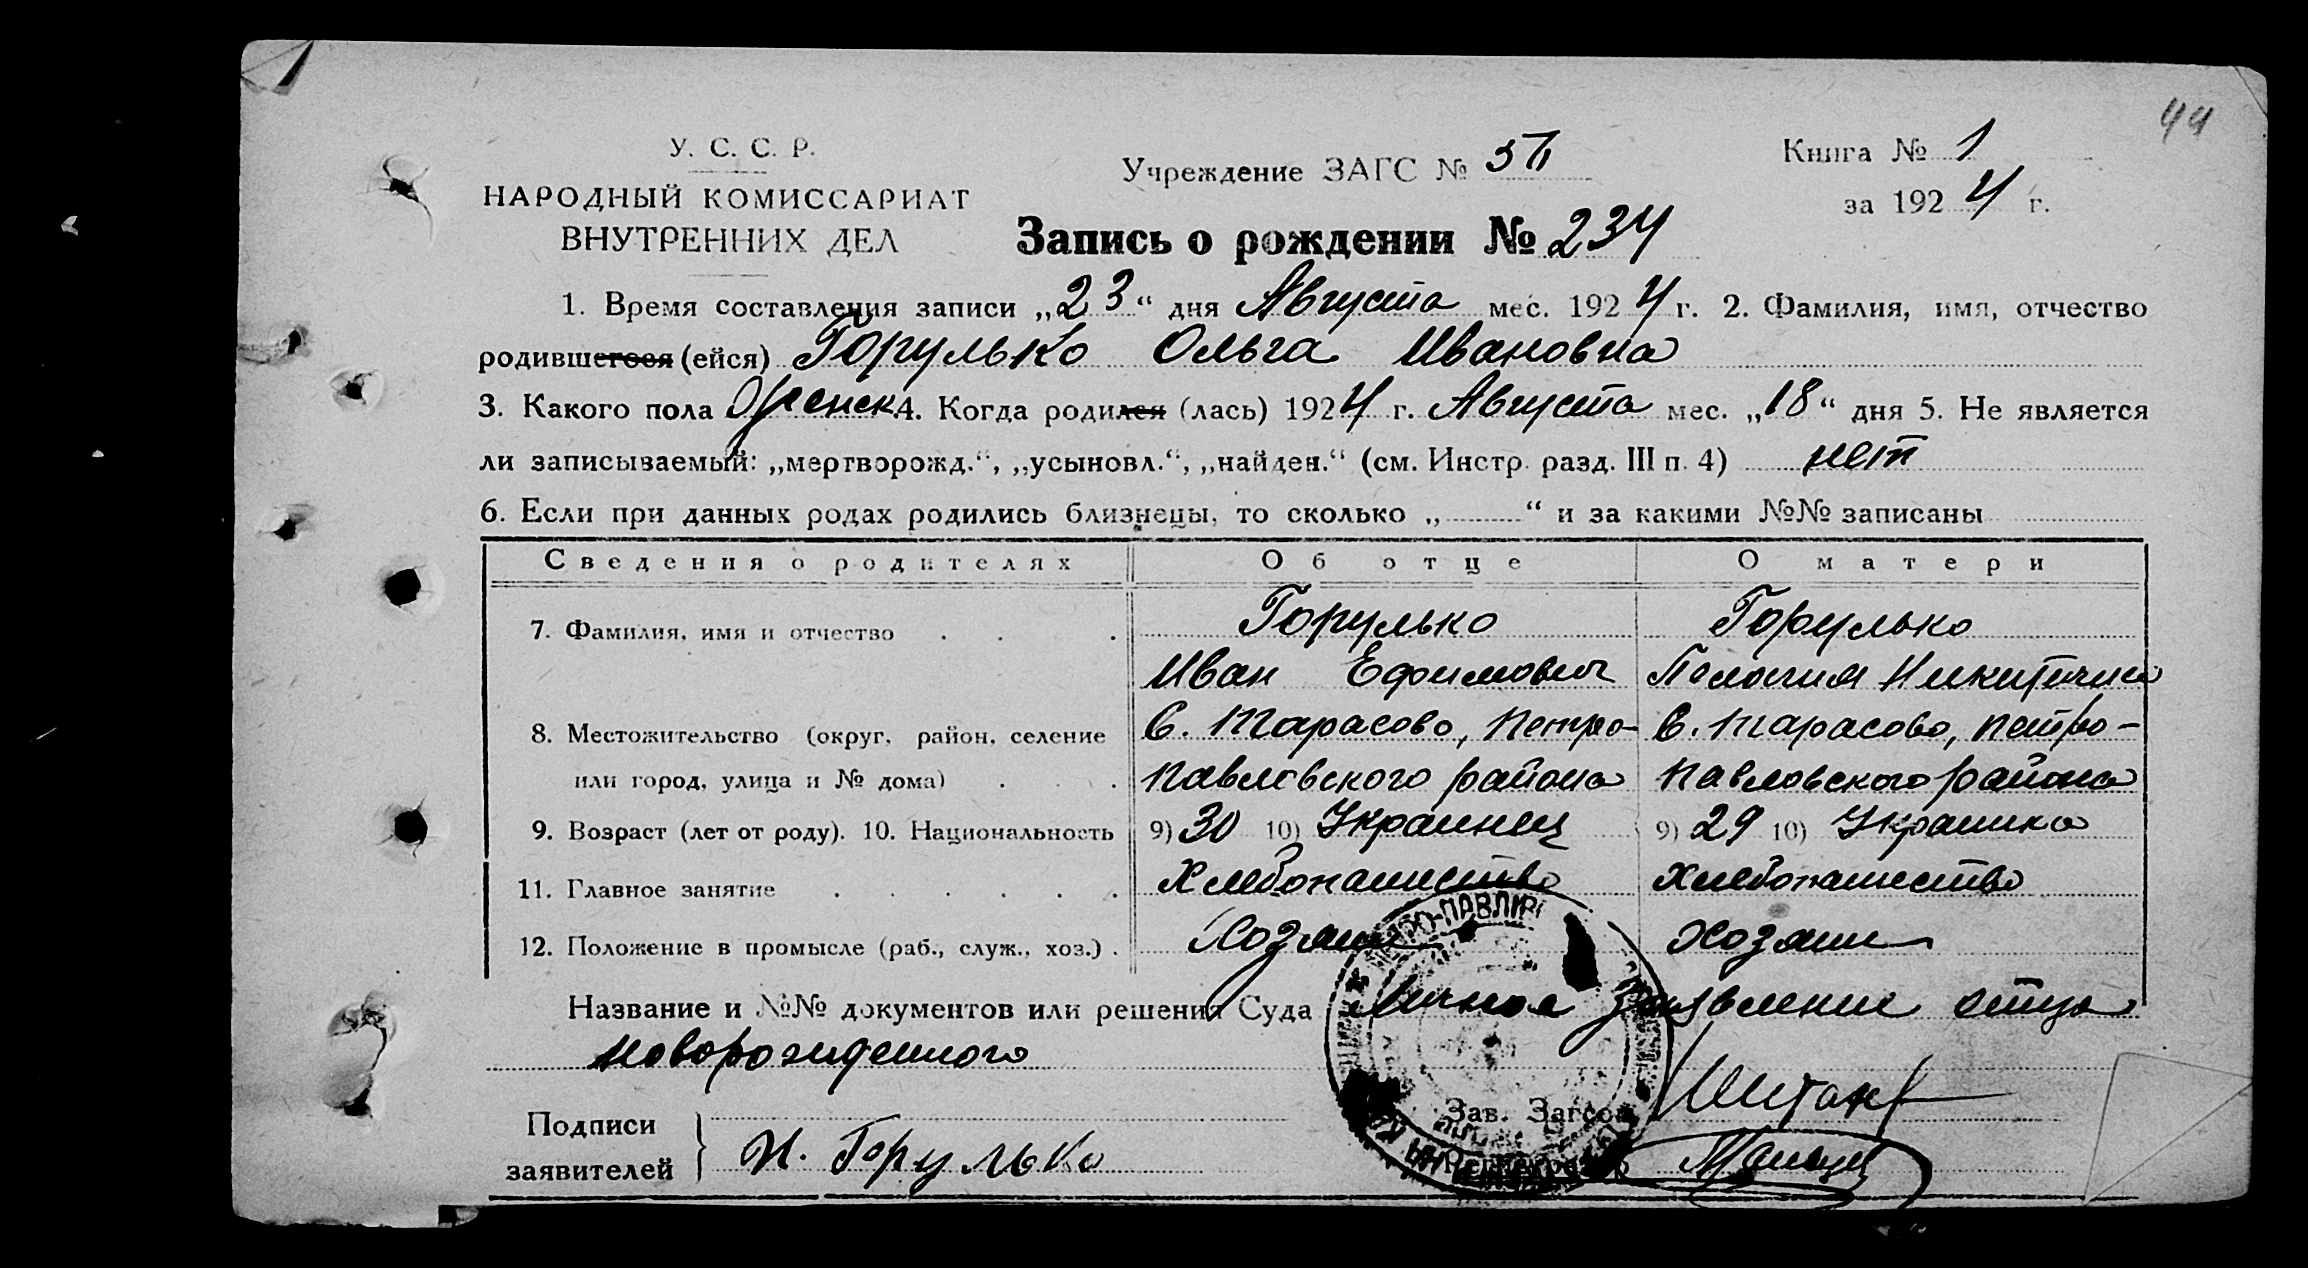 44
У. С. С. Р.
НАРОДНЫЙ КОМИССАРИАТ
ВНУТРЕННИХ ДЕЛ
Учреждение ЗАГС №
Книга № 1
за 1924 г.
Запись о рождении № 234
1. Время составления записи „23“ дня Августа мес. 1924 г. 2. Фамилия, имя, отчество
родившегося (ейся) Горулько Ольга Ивановна
3. Какого пола Женск 4. Когда родился (лась) 1924 г. Августа мес. „18“ дня 5. Не является
ли записываемый: „мертворожд.“, „усыновл.“, „найден.“ (см. Инстр. разд. III п. 4) нет
6. Если при данных родах родились близнецы, то сколько „ “ и за какими №№ записаны
Сведения о родителях Об отце О матери
7. Фамилия, имя и отчество Горулько Горулько
Иван Ефимович Пелагия Никитична
8. Местожительство (округ, район, селение С. Тарасово, Петро- С. Тарасово, Петро-
или город, улица и № дома) павловского района павловского района
9. Возраст (лет от роду). 10. Национальность 9) 30 10) Украинец 9) 29 10) Украинка
11. Главное занятие Хлебопашество Хлебопашество
12. Положение в промысле (раб., служ., хоз.) Хозяин Хозяин
Название и №№ документов или решения Суда Личное Заявление отца
новорожденного
Подписи
заявителей И. Горулько
Зав. Загсом